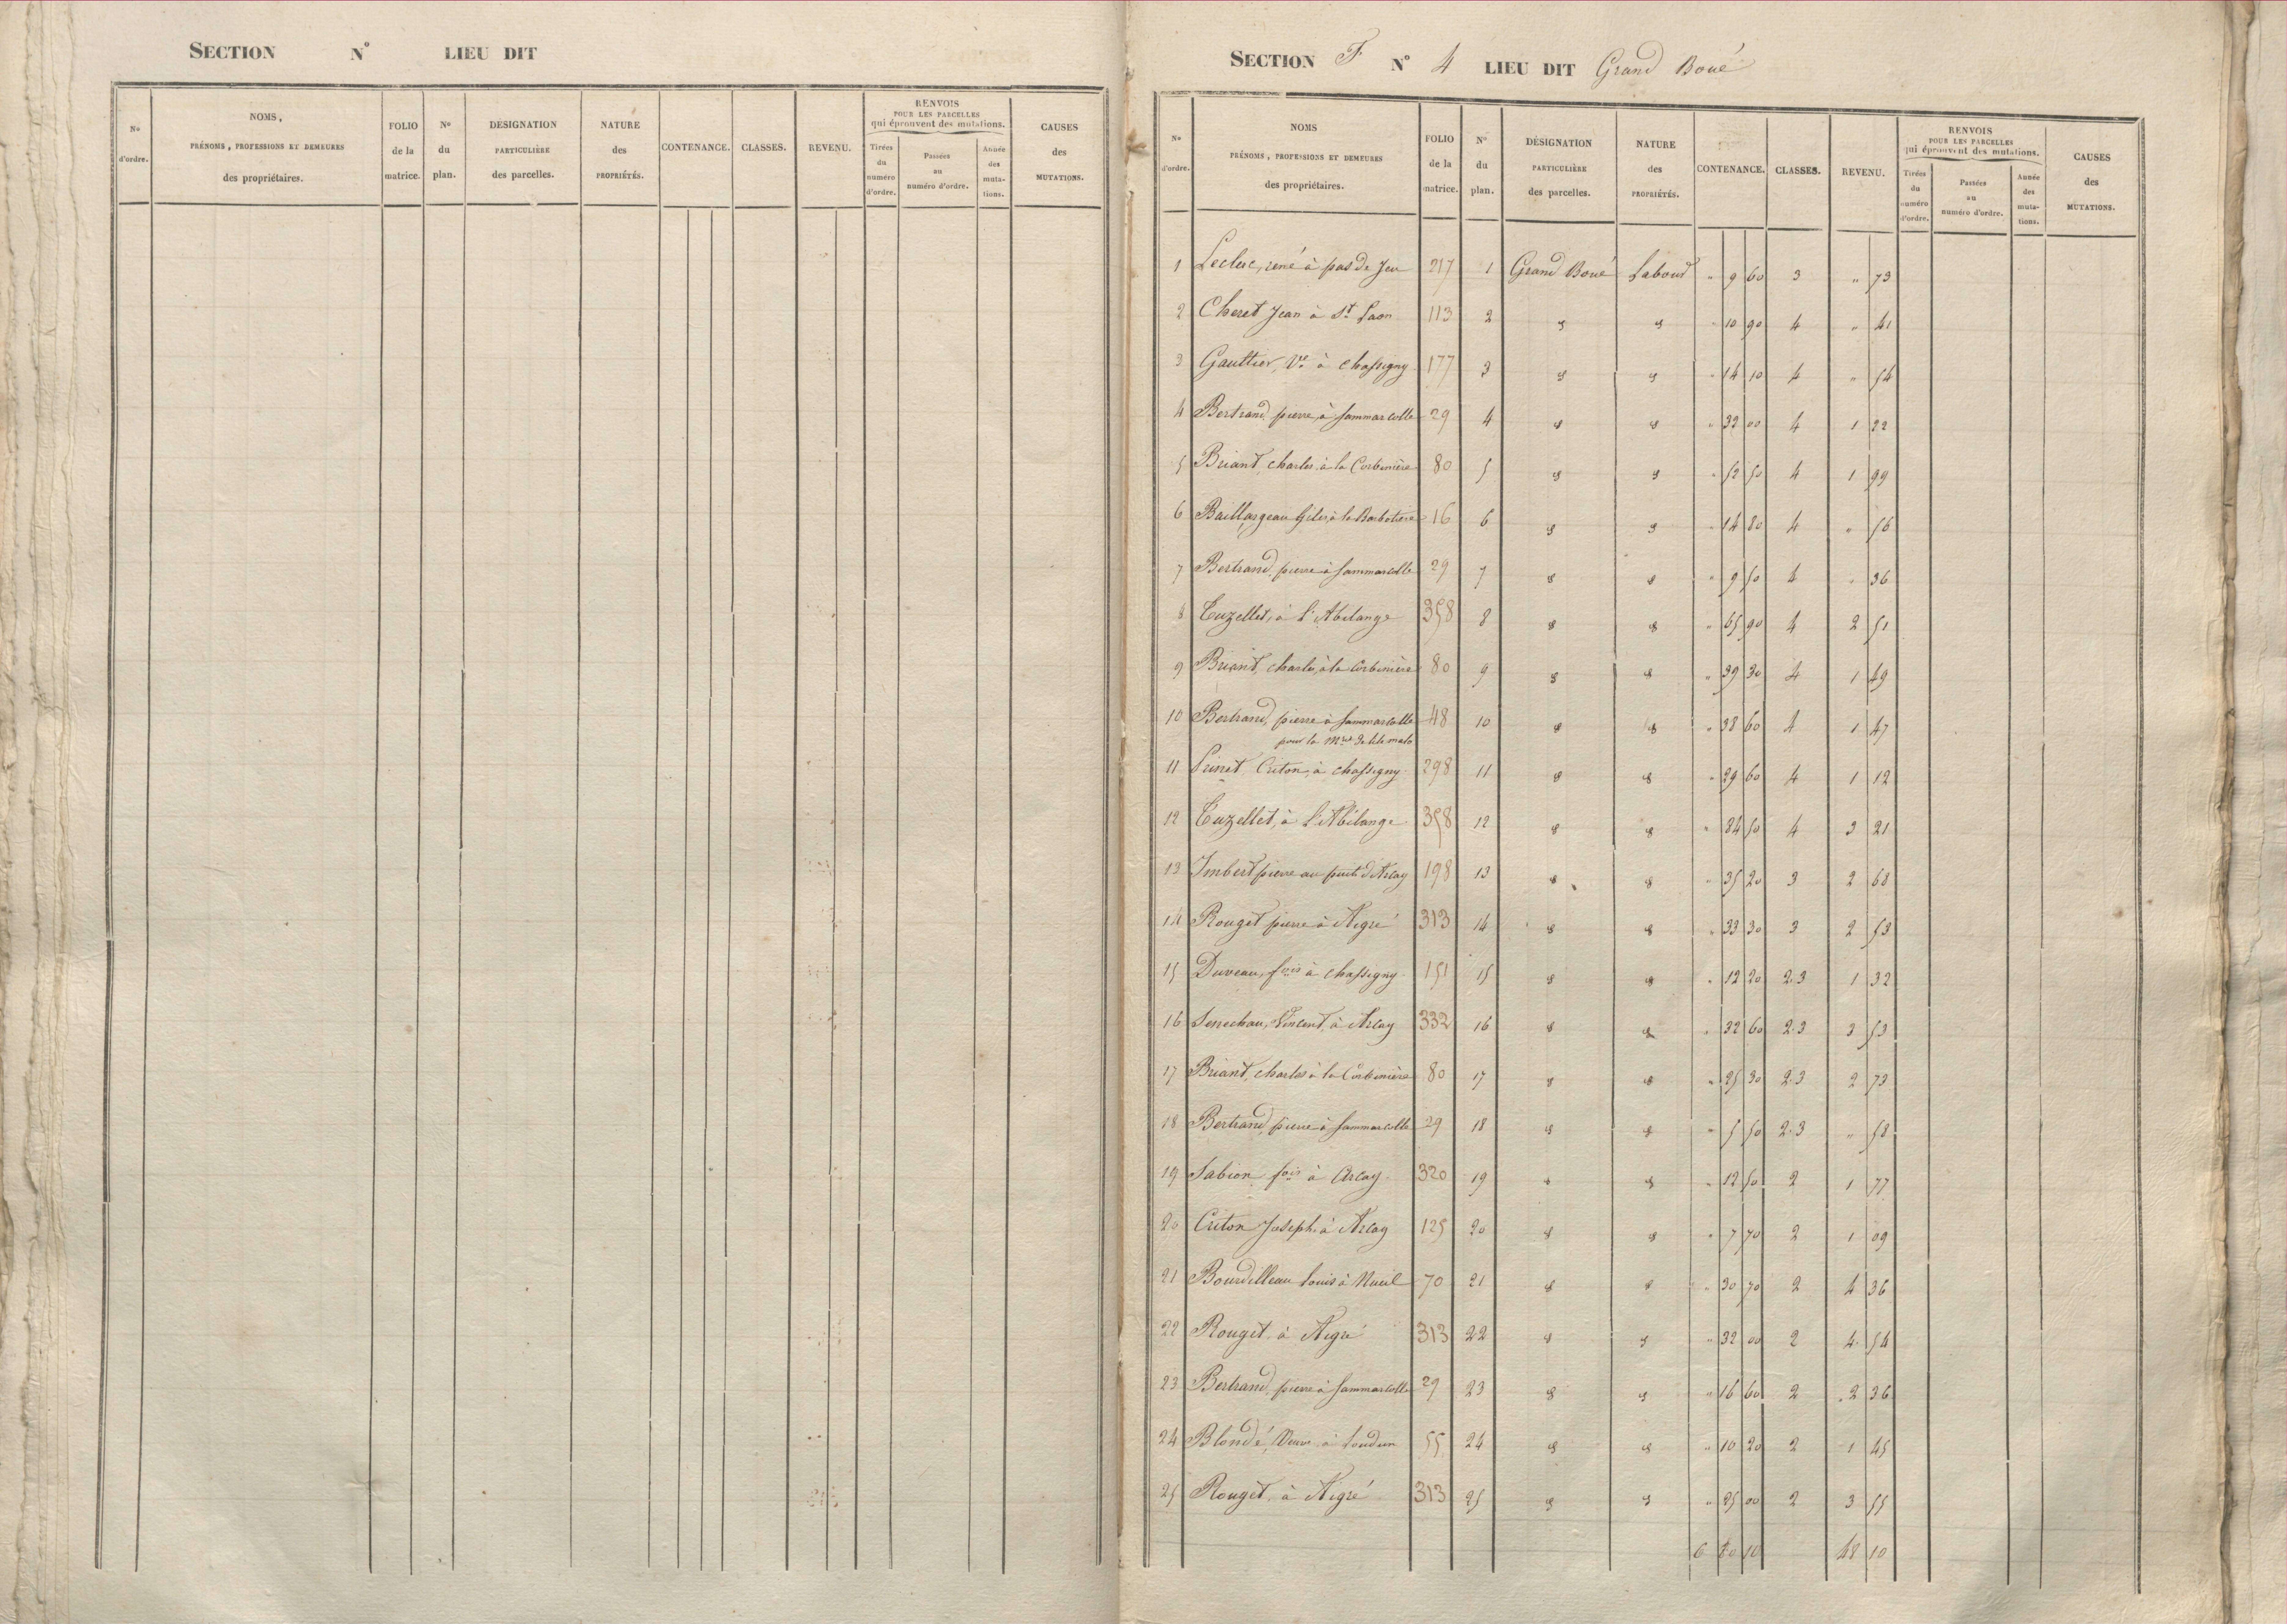 SECTION N° LIEU DIT
N° d'ordre. NOMS, PRÉNOMS, PROFESSIONS ET DEMEURES des propriétaires. FOLIO de la matrice. N° du plan. DESIGNATION PARTICULIÈRE des parcelles. NATURE des PROPRIÉTÉS. CONTENANCE. CLASSES. REVENU. RENVOIS POUR LES PARCELLES qui éprouvent des mutations. Tirées du numéro d'ordre. Passées au numéro d'ordre. Année des mutations. CAUSES des MUTATIONS.
SECTION F N° 4 LIEU DIT Grand Boué
N° d'ordre. NOMS PRÉNOMS, PROFESSIONS ET DEMEURES des propriétaires. FOLIO de la matrice. N° du plan. DÉSIGNATION PARTICULIÈRE des parcelles. NATURE des PROPRIÉTÉS. CONTENANCE. CLASSES. REVENU. RENVOIS POUR LES PARCELLES qui éprouvent des mutations. Tirées du numéro d'ordre. Passées au numéro d'ordre. Année des mutations. CAUSES des MUTATIONS.
1 Leclerc, rené à pas de Jeu 217 1 Grand Boué Labour " 9 60 3 " 73
2 Cheret Jean à St Laon 113 2 " " " 10 90 4 " 41
3 Gaultier, Ve à chassigny 177 3 " " " 14 10 4 " 54
4 Bertrand, pierre, à Sammarcolle 29 4 " " " 32 00 4 1 22
5 Briant, charles, à la Corbinière 80 5 " " " 52 50 4 1 99
6 Baillargeau Giles, à la Barbotiere 16 6 " " " 14 80 4 " 56
7 Bertrand, pierre à Sammarcolle 29 7 " " " 9 50 4 " 36
8 Euzellet, à l'Abilange 358 8 " " " 65 90 4 2 51
9 Briant, charles, à la Corbinière 80 9 " " " 39 30 4 1 49
10 Bertrand, pierre à Sammarcolle 48 10 " " " 38 60 4 1 47
pour la
11 Prinet Criton, à chassigny 298 11 " " " 29 60 4 1 12
12 Euzellet, à l'Abilange 358 12 " " " 84 50 4 3 21
13 Imbert pierre au puits d'Arcay 198 13 " " " 35 20 3 2 68
14 Rouget pierre à Aigré 313 14 " " " 33 30 3 2 53
15 Duveau, fois à chassigny 151 15 " " " 12 20 2.3 1 32
16 Senechau, Vincent, à Arcay 332 16 " " " 32 60 2.3 3 53
17 Briant, charles à la Corbinière 80 17 " " " 25 30 2.3 2 73
18 Bertrand, pierre à Sammarcolle 29 18 " " " 5 50 2.3 " 58
19 Sabion fois à Arcay 320 19 " " " 12 50 2 1 77
20 Criton Joseph à Arcay 125 20 " " " 7 70 2 1 09
21 Bourdilleau Louis à Nueil 70 21 " " " 30 70 2 4 36
22 Rouget à Aigré 313 22 " " " 32 00 2 4 54
23 Bertrand, pierre à Sammarcolle 29 23 " " " 16 60 2 2 36
24 Blondé, Veuve à Loudun 55 24 " " " 10 20 2 1 45
25 Rouget, à Aigré 313 25 " " " 25 00 2 3 55
6 80 10 48 10